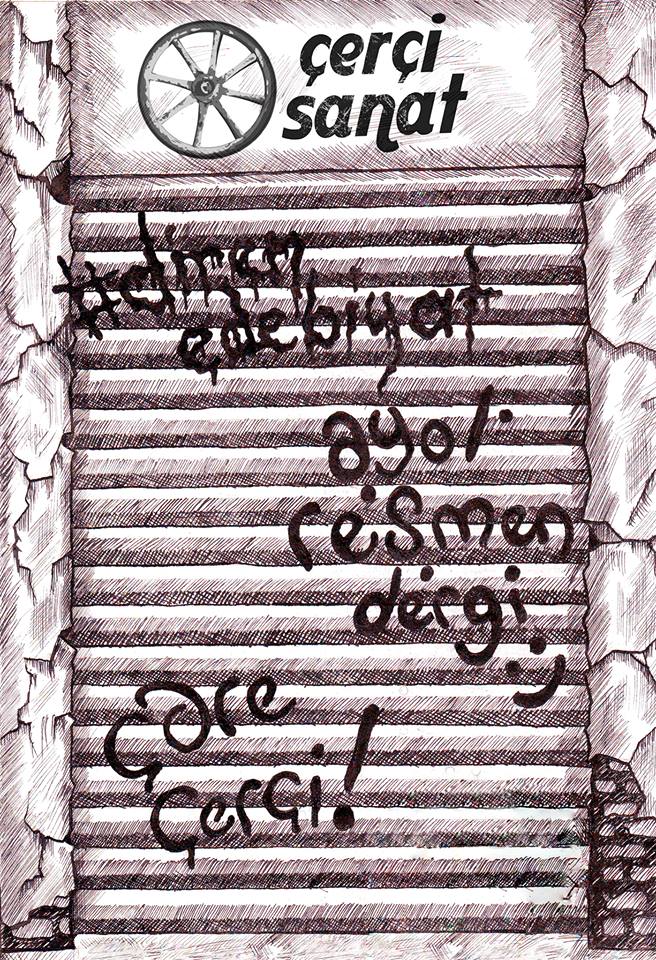 çerçi
sanat
#diren
edebiyat
ayol
resmen
dergi :)
çare
çerçi!